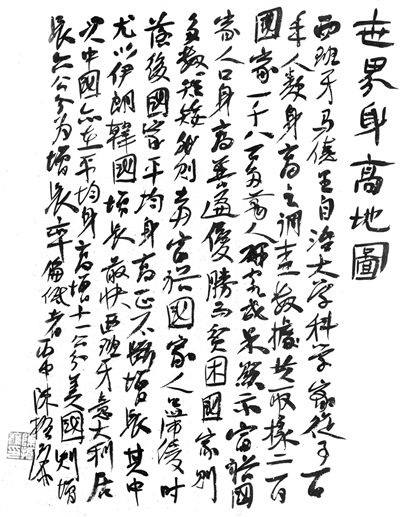 世界身高地圖
西班牙馬德里自治大学科学家從千百
年人類身高之調查数據共取樣二百
國家一千八百多萬人研究成果顯示富裕國
家人口身高普遍優勝而貧困國家則
多数矮矮
國家人
落後國家平均身高正不斷增長其中
尤以伊朗韓國增長最快西班牙意大利居
次中國亦在平均身高增十一公分美國則增
長六公分為增長率偏低者丙申陳